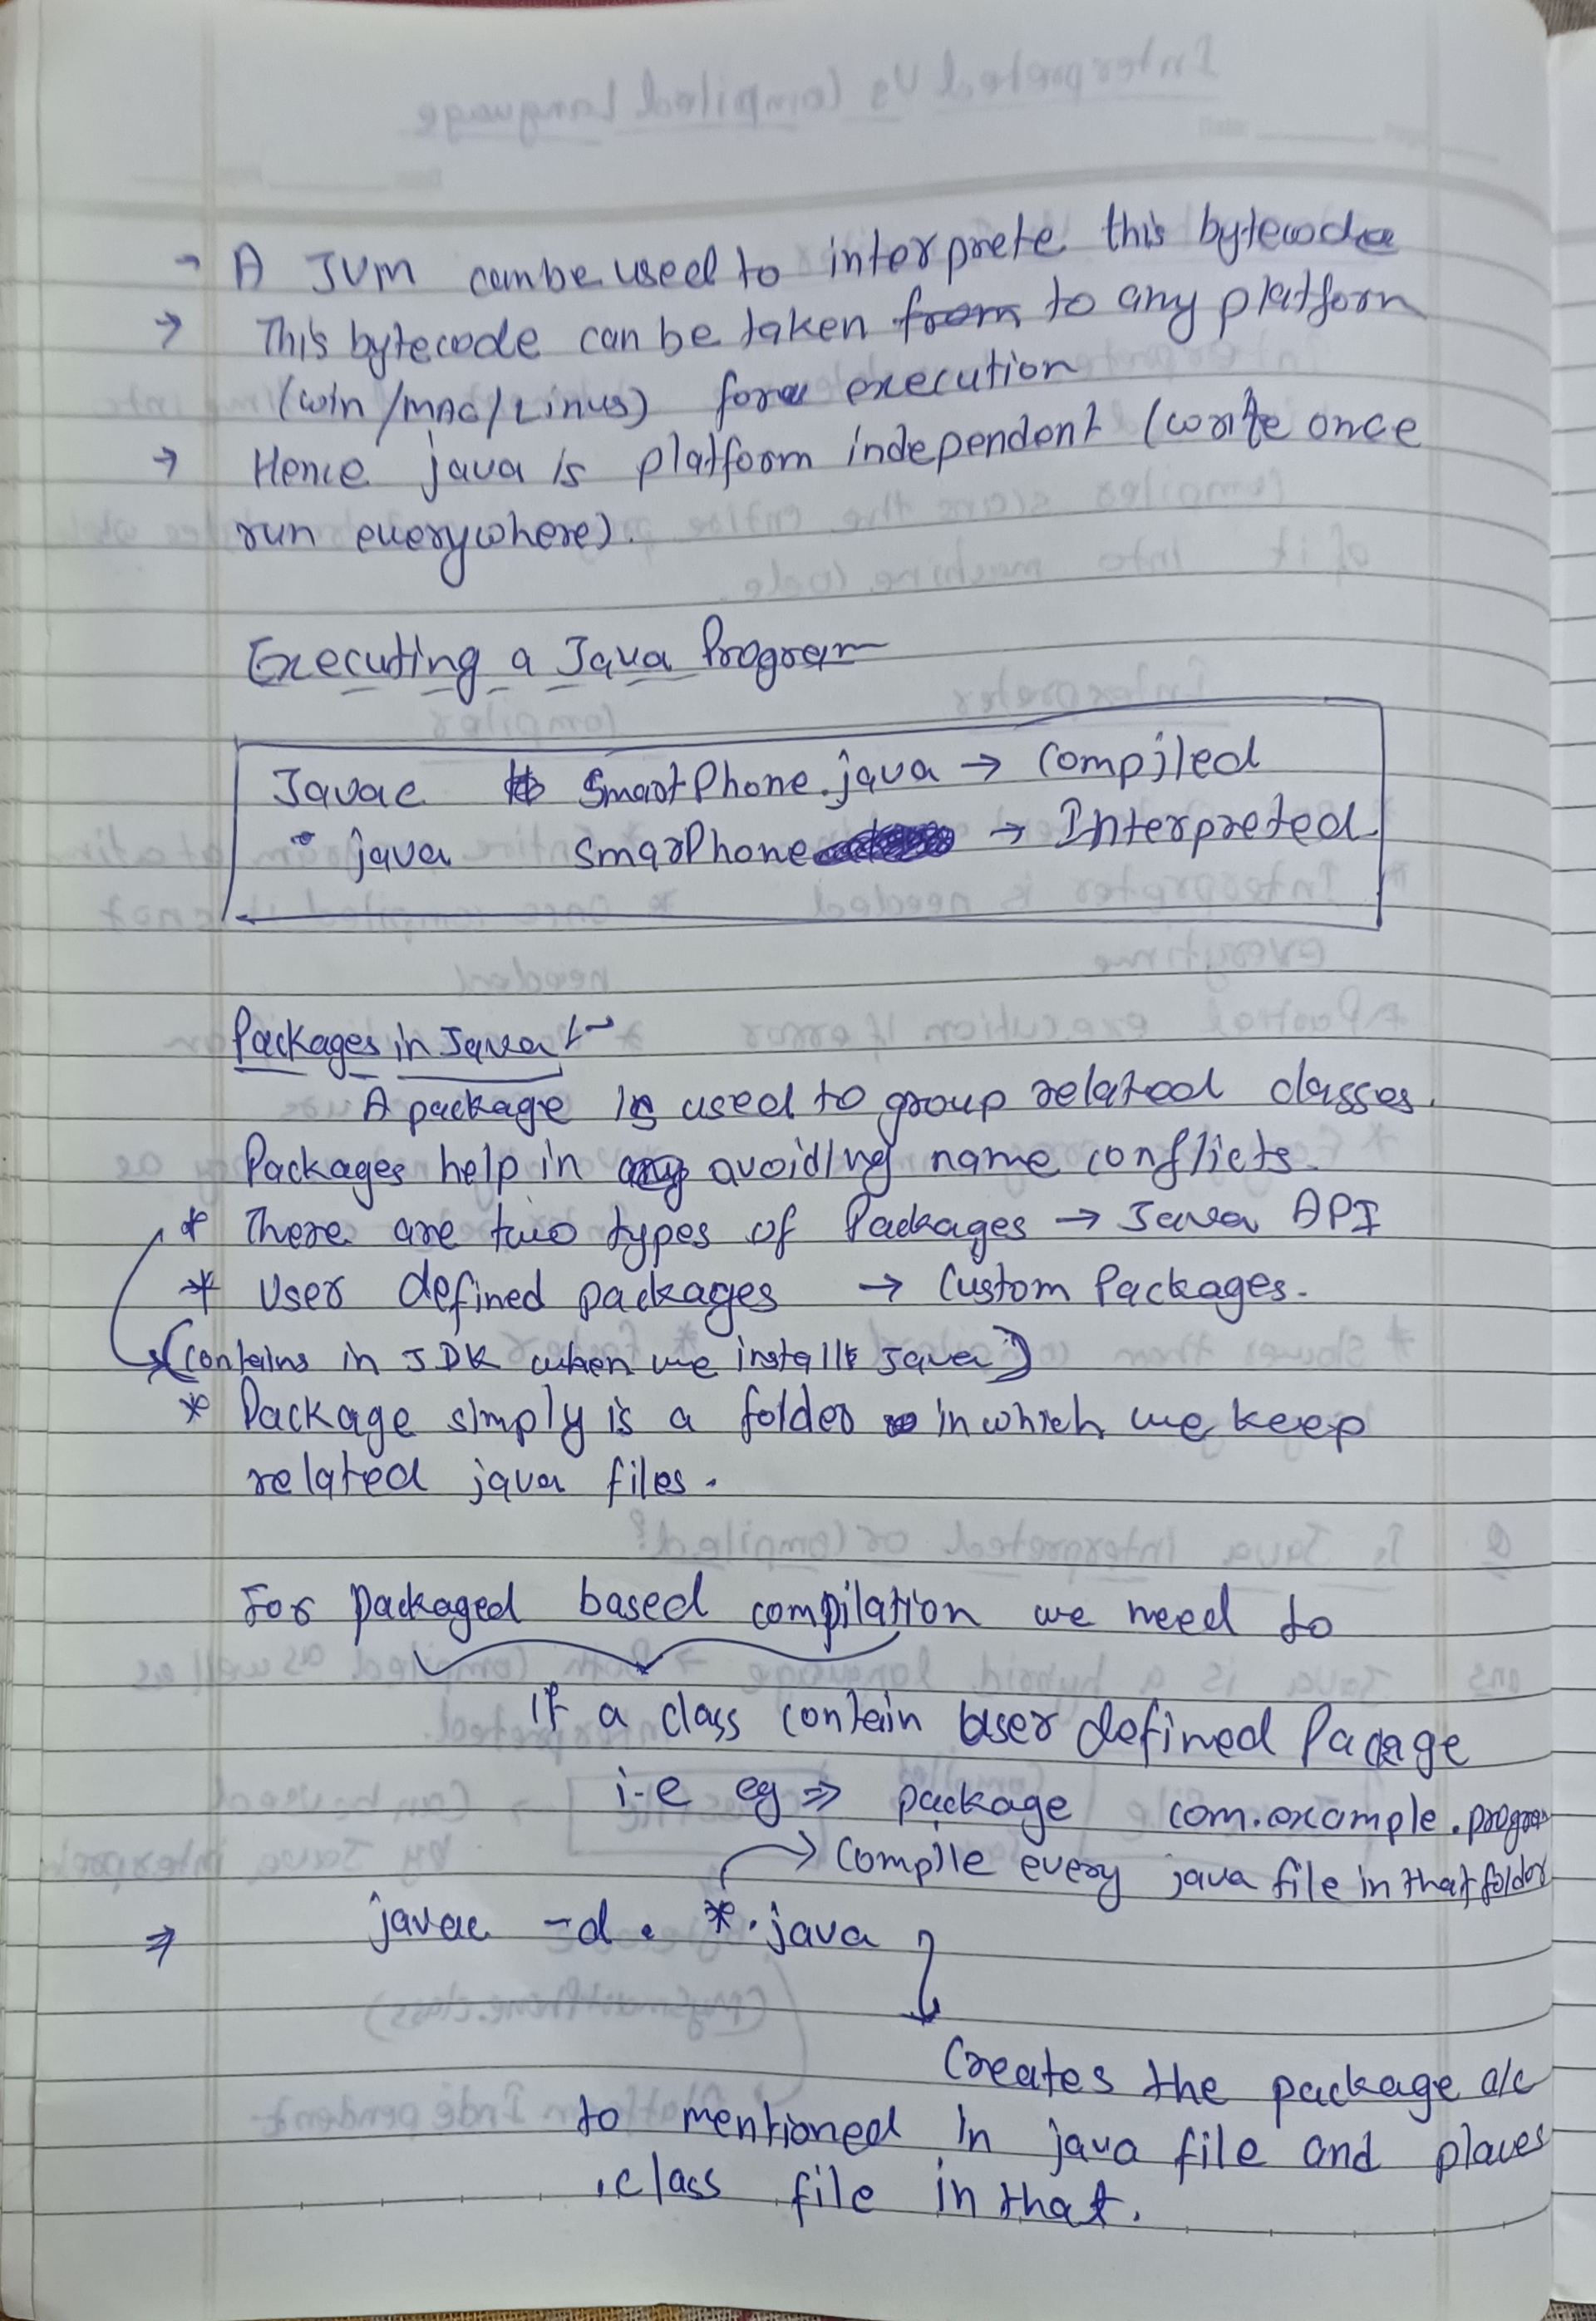 → A JVM can be used to interprete this bytecode
→ This bytecode can be taken from to any platform
(win/MAC/Linus) for execution
→ Hence java is platform independent (write once
run everywhere).
Executing a Java Program
Javac SmartPhone.java → Compiled
java SmarPhone → Interpreted
Packages in Java :-
A package is used to group related classes.
Packages help in avoiding name conflicts.
* There are two types of Packages → Java API
* User defined packages → Custom Packages.
(Contains in JDK when we install Java)
* Package simply is a folder in which we keep
related java files.
For packaged based compilation we need to
If a class contain user defined Pacage
i.e eg ⇒ package com.example.program
→ Compile every java file in that folder
⇒ javac -d . *.java
Creates the package a/c
to mentioned in java file and places
.class file in that.